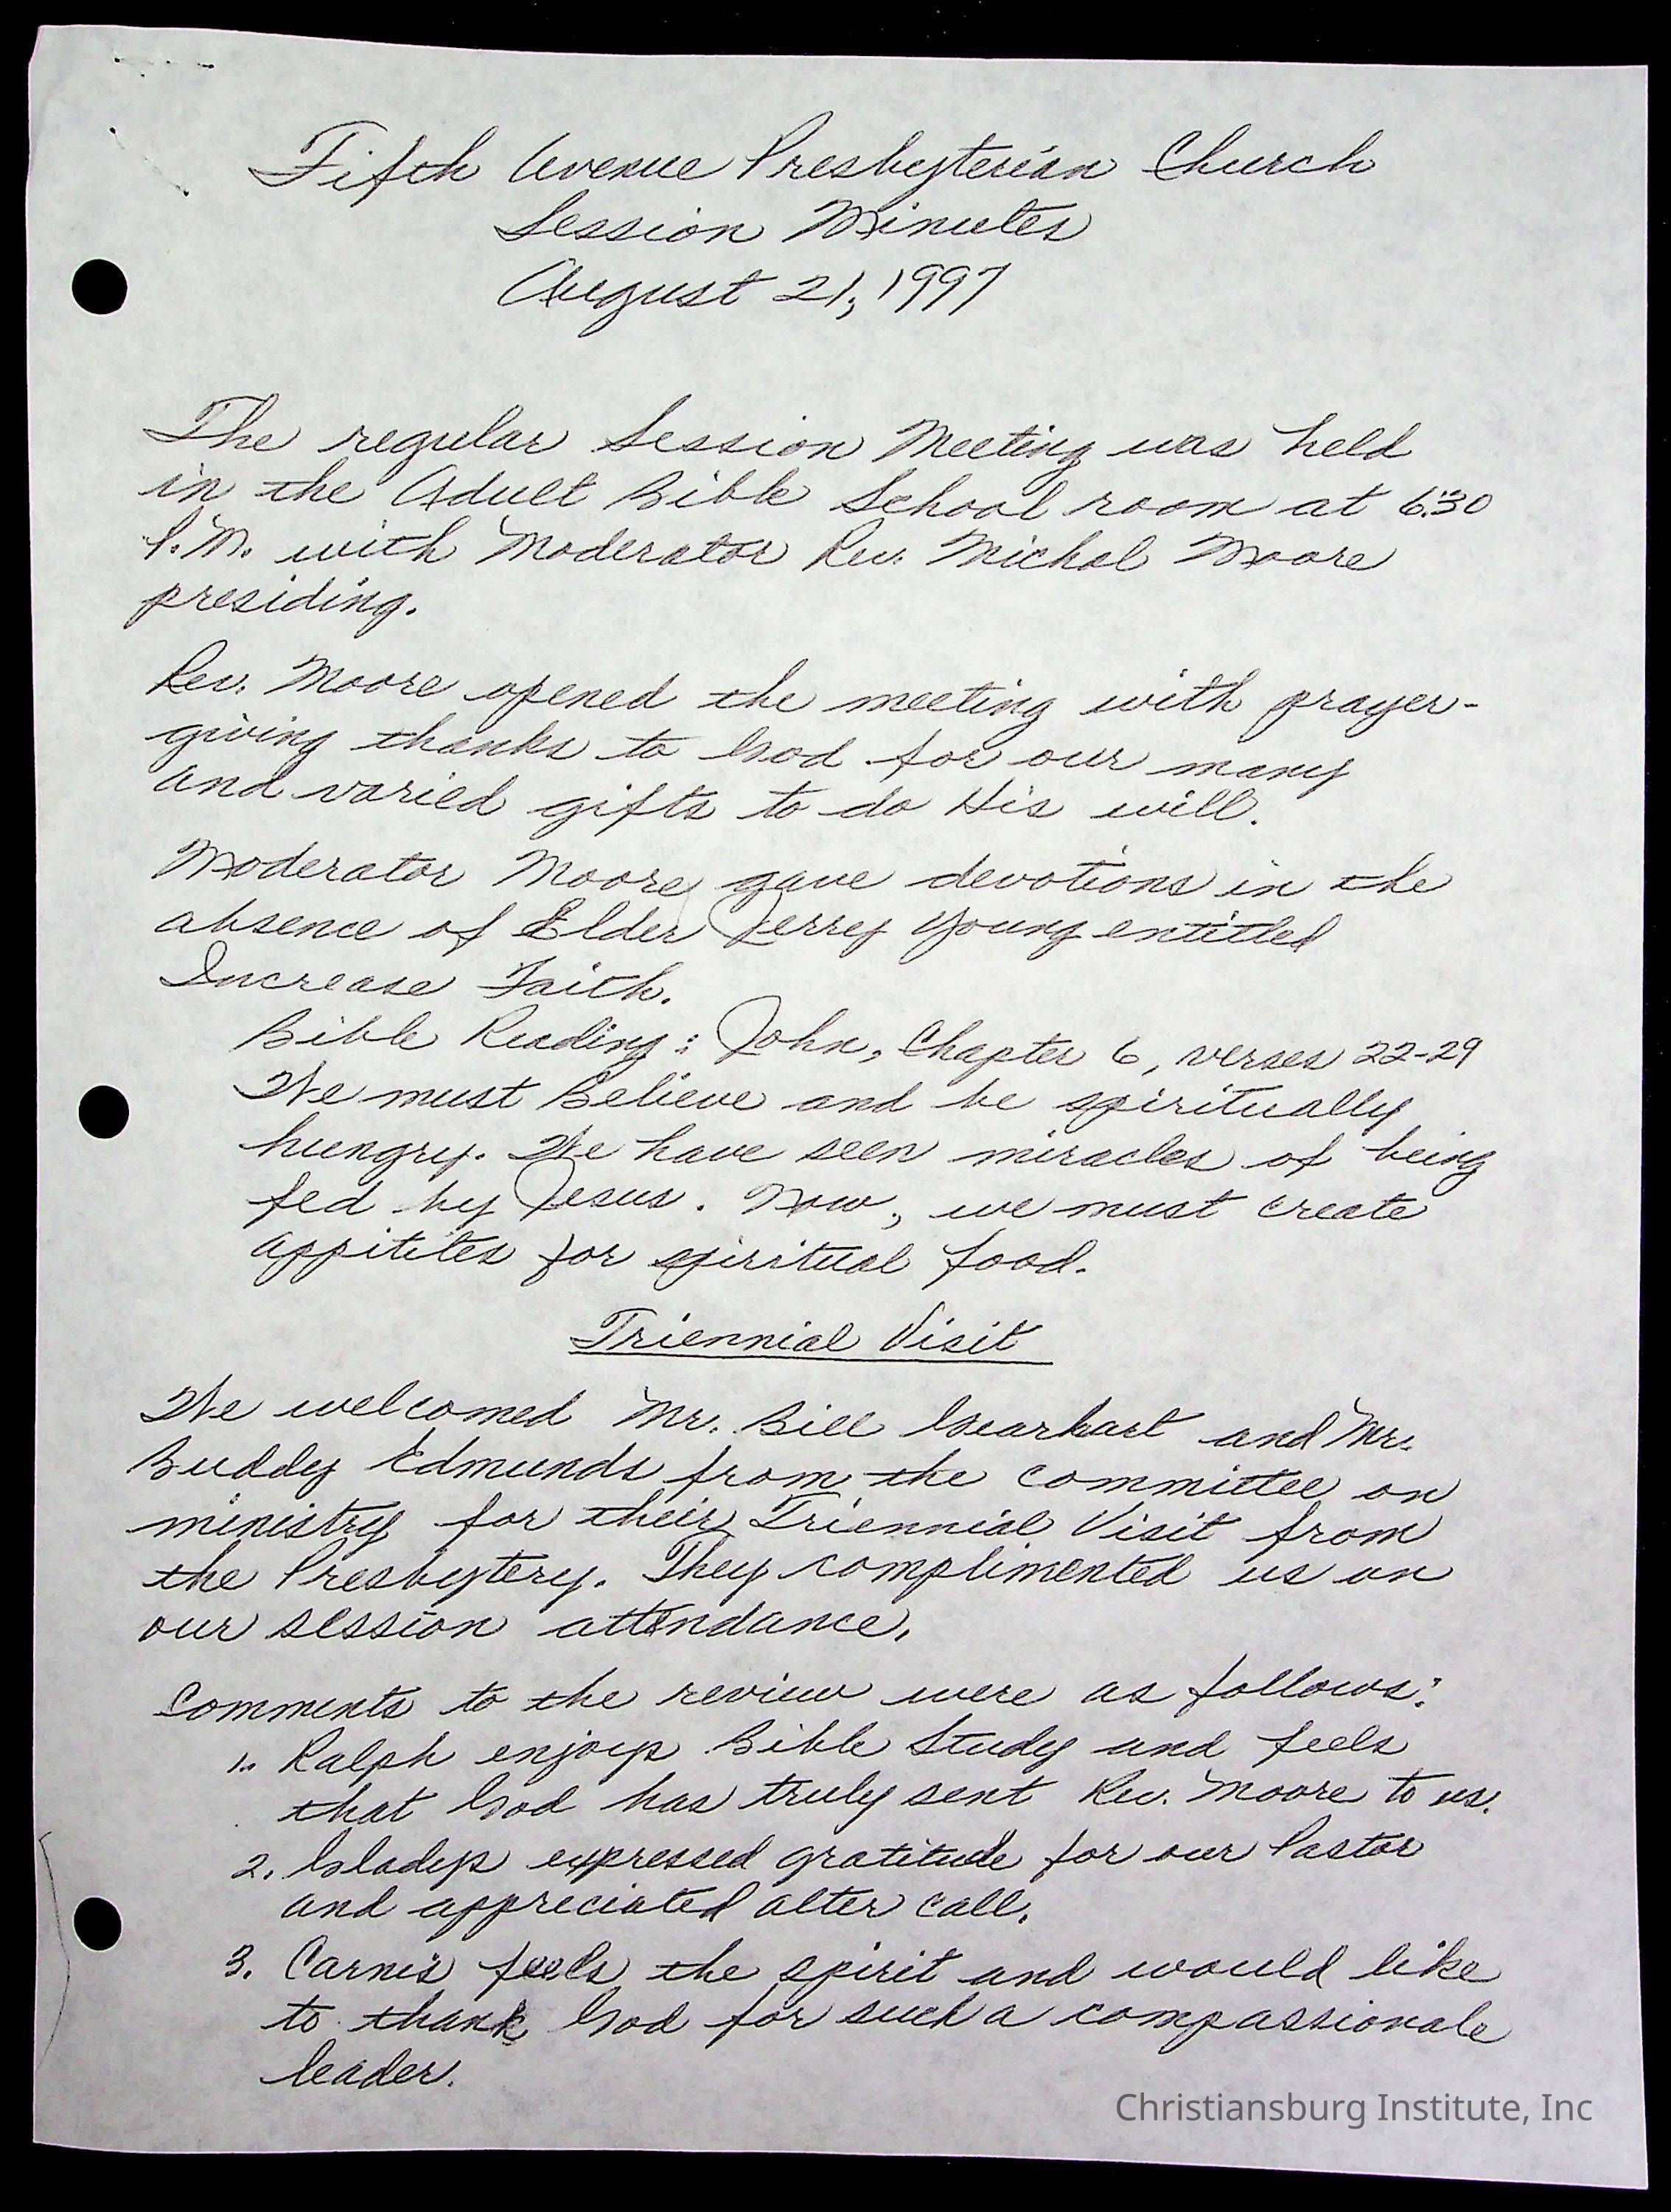 Fifth Avenue Presbyterian Church
Session Minutes
August 21, 1997
The regular Session Meeting was held
in the Adult Bible School room at 6:30
P.M. with Moderator Rev. Michal Moore
presiding.
Rev. Moore opened the meeting with prayer-
giving thanks to God for our many
and varied gifts to do His will.
Moderator Moore gave devotions in the
absence of Elder Jerry Young entitled
Increase Faith.
Bible Reading: John, Chapter 6, verses 22-29
We must Believe and be spiritually
hungry. We have seen miracles of being
fed by Jesus. Now, we must create
appitites for spiritual food.
Triennial Visit
We welcomed Mr. Bill Gearhart and Mr.
Buddy Edmunds from the committee on
ministry for their Triennial Visit from
the Presbytery. They complimented us on
our session attendance.
Comments to the review were as follows:
1. Ralph enjoys Bible Study and feels
that God has truly sent Rev. Moore to us.
2. Gladys expressed gratitude for our Pastor
and appreciated alter call.
3. Carnis feels the spirit and would like
to thank God for such a compassionale
leader.
Christiansburg Institute, Inc